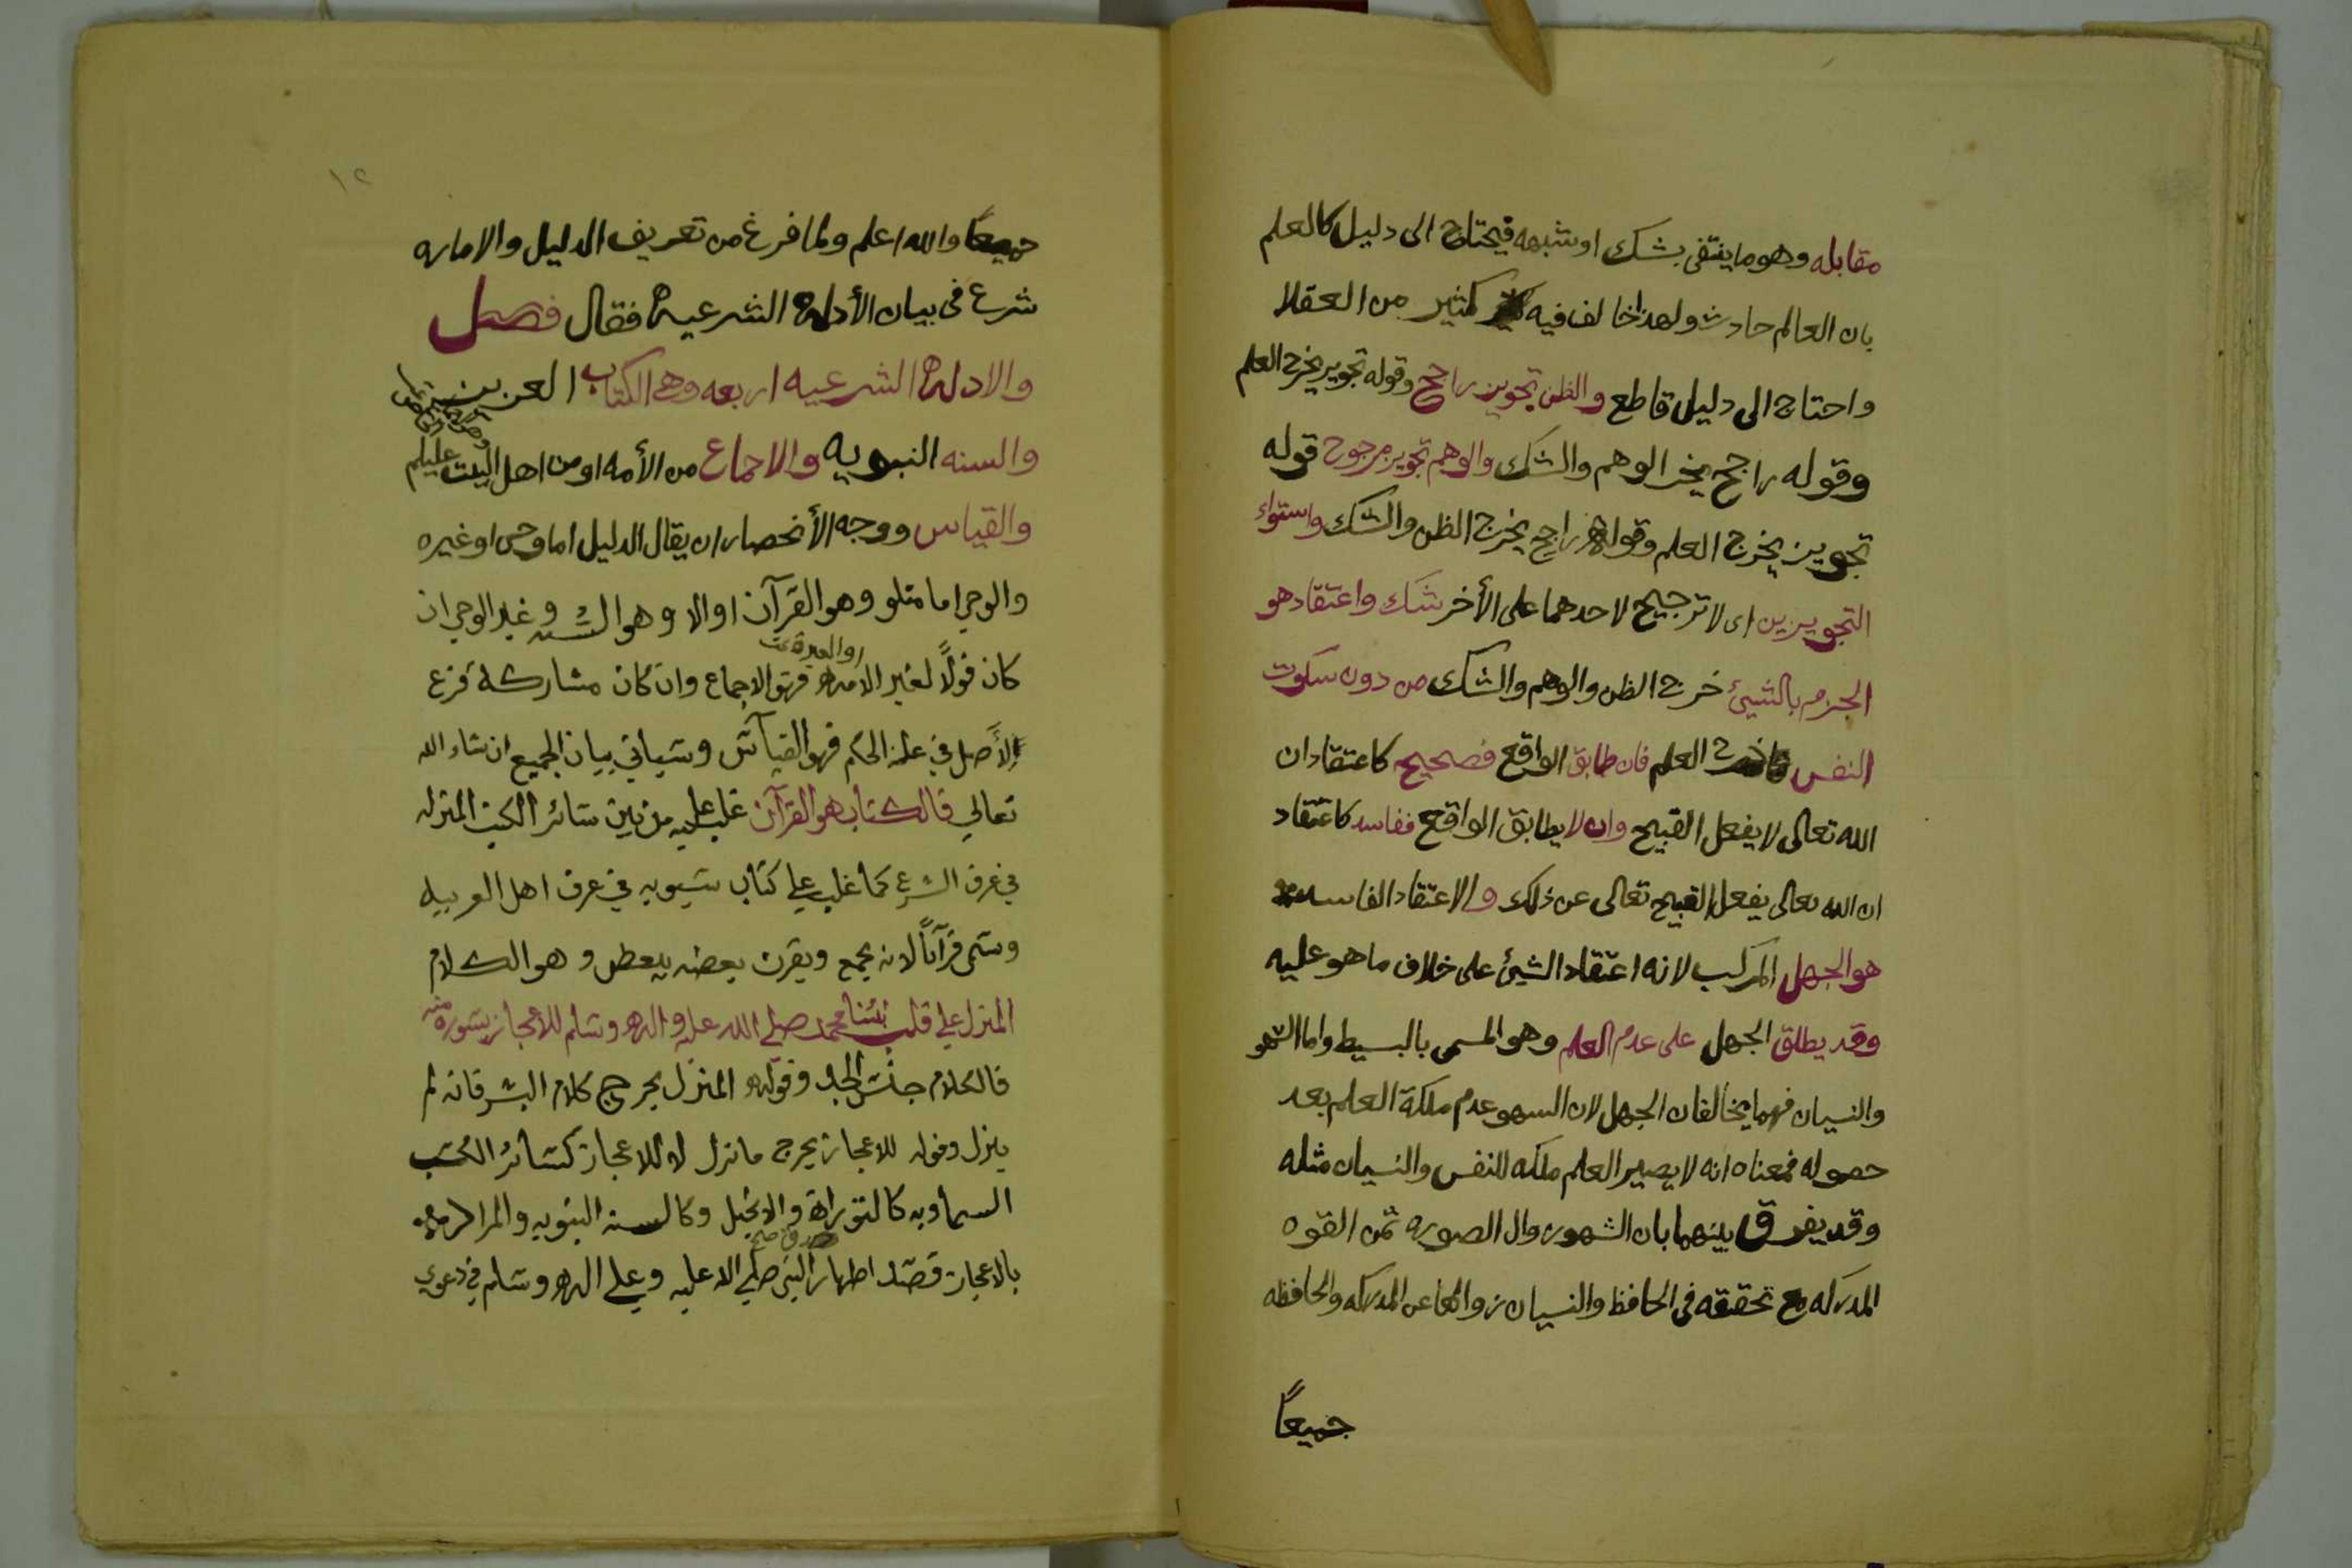 مقابله وهو ما ينتفى بشك او شبهه فيحتاج الى دليل كالعلم
بان العالم حادث ولهذا خالف فيه كثير من العقلا
واحتاج الى دليل قاطع والظن تجويز راجح وقوله تجويز يخرج العلم
وقوله راجح يخرج الوهم والشك والوهم تجويز مرجوح قوله
تجويز يخرج العلم وقوله راجح يخرج الظن والشك واستواء
التجويزين اى لا ترجيح لاحدهما على الأخر شك واعتقاد هو
الجزم بالشيئ خرج الظن والوهم والشك من دون سكون
النفس العلم فان طابق الواقع فصحيح كاعتقاد ان
الله تعالى لا يفعل القبيح وان لا يطابق الواقع ففاسد كاعتقاد
ان الله تعالى يفعل القبيح تعالى عن ذلك والاعتقاد الفاسد
هو الجهل المركب لانه اعتقاد الشيئ على خلاف ما هو عليه
وقد يطلق الجهل على عدم العلم وهو المسمى بالبسيط واما السهو
والنسيان فهما يخالفان الجهل لان السهو عدم ملكة العلم بعد
حصوله فمعناه انه لا يصير العلم ملكه للنفس والنسيان مثله
وقد يفرق بينهما بان السهو زوال الصوره من القوه
المدركه مع تحققه فى الحافظ والنسيان زوالها عن المدركه والحافظه
جميعاً
١٢
جميعاً والله اعلم ولما فرغ من تعريف الدليل والاماره
شرع فى بيان الأدلة الشرعية فقال فصل
والادلة الشرعيه اربعه وهى الكتاب العزيز
والسنه النبويه والاجماع من الأمه او من اهل البيت عليلم
والقياس ووجه الأنحصار ان يقال الدليل اما وحى او غيره
والوحى اما متلو وهو القرآن اوالا وهو السنه وغير الوحى ان
كان قولاً لغير الامه او العترة فهو الاجماع وان كان مشاركة فرع
الأصل في علة الحكم فهو القياس وسياتي بيان الجميع ان شاء الله
تعالي فالكتاب هو القرآن غلب عليه من بين سائر الكتب المنزله
في عرف الشرع كما غلب علي كتاب سيبويه في عرف اهل العربيه
وسمى قرآناً لانه يجمع ويقرن بعضه ببعض وهو الكلام
المنزل علي قلب نبئنا محمد صلي الله عليه واله وسلم للاعجاز بسورة منه
فالكلام جنس الحد وقوله المنزل يخرج كلام البشر فانه لم
ينزل وقوله للاعجاز يخرج مانزل لا للاعجاز كسائر الكتب
السماويه كالتوراة والانجيل وكالسنه النبويه والمراد
بالاعجاز قصد اظهار صدق النبي صلي الله عليه وعلي اله وسلم في دعوى